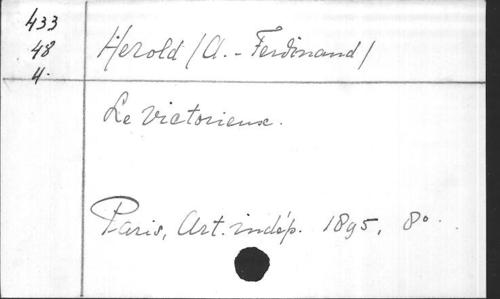 433
48
4.
Herold (A. - Ferdinand)
Le Victorieux.
Paris, Art. indép. 1895, 8°.